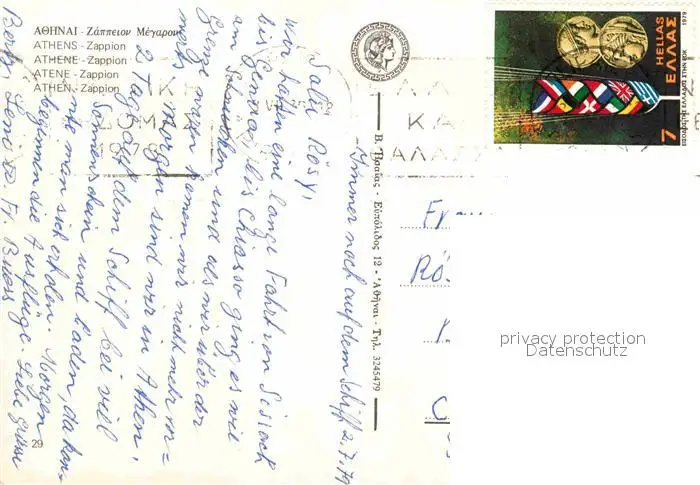 ΑΘΗΝΑΙ - Ζάππειον Μέγαρον
ATHENS - Zappion
ATHENE - Zappion
ATENE - Zappion
ATHEN - Zappion
Immer noch auf dem Schiff 2.7.79
Salü Rösy,
wir hatten eine lange Fahrt von Sissach
bis Genua, bis Chiasso ging es wie
am Schnürchen und als wir über der
Grenze waren kamen wir nicht mehr vor=
wärts. Morgen sind wir in Athen,
2 Tag auf dem Schiff bei viel
Sonnenschein und baden, da kan
n man sich erholen. Morgen
beginnen die Ausflüge. Liebe Grüsse
Leni
29
Β. - Εὐπόλιδος 12 - Ἀθῆναι - Τηλ. 3245479
HELLAS
ΕΛΛΑΣ
1979
7
ΕΙΣΟΔΟΣ ΤΗΣ ΕΛΛΑΔΟΣ ΣΤΗΝ ΕΟΚ
Rös
privacy protection
Datenschutz